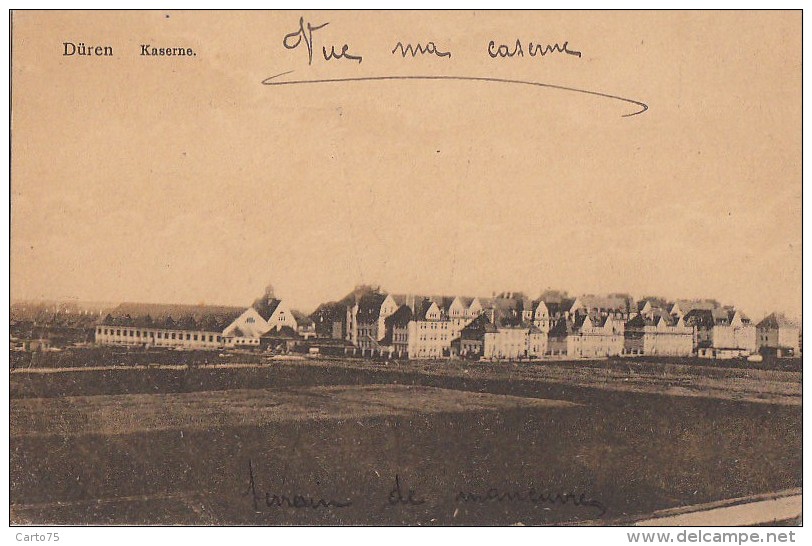 Düren Kaserne. Vue ma caserne
terrain de manœuvre
Carto75
delcampe.net